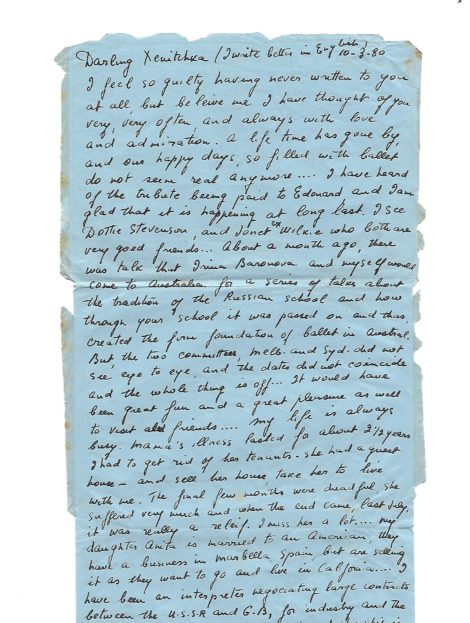 Darling Xenitchka (I write better in English)
10-3-80
I feel so guilty having never written to you
at all, but believe me I have thought of you
very, very often and always with love
and admiration. A life time has gone by,
and our happy days, so filled with ballet
do not seem real anymore.... I have heard
of the tribute being paid to Edouard and I am
glad that it is happening at long last. I see
Dottie Stevenson, and Janet Wilkie who both are
very good friends... About a month ago, there
was talk that Irina Baronova and myself would
come to Australia for a series of talks about
the tradition of the Russian school and how
through your school it was passed on and thus
created the firm foundation of ballet in Austral.
But, the two committees, Melb. and Syd. did not
see eye to eye, and the dates did not coincide
and the whole thing is off... It would have
been great fun and a great pleasure as well
to visit old friends.... My life is always
busy. Mama's illness lasted for about 2 1/2 years
I had to get rid of her tenants - she had a guest
house - and sell her house, take her to live
with me. The final few months were dreadful she
suffered very much and when the end came, last July,
it was really a relief. I miss her a lot.... my
daughter Anita is married to an American they
have a business in Marbella Spain, but are selling
it as they want to go and live in California.... I
have been an interpreter negociating large contracts
between the U.S.S.R and G.B, for industry and the